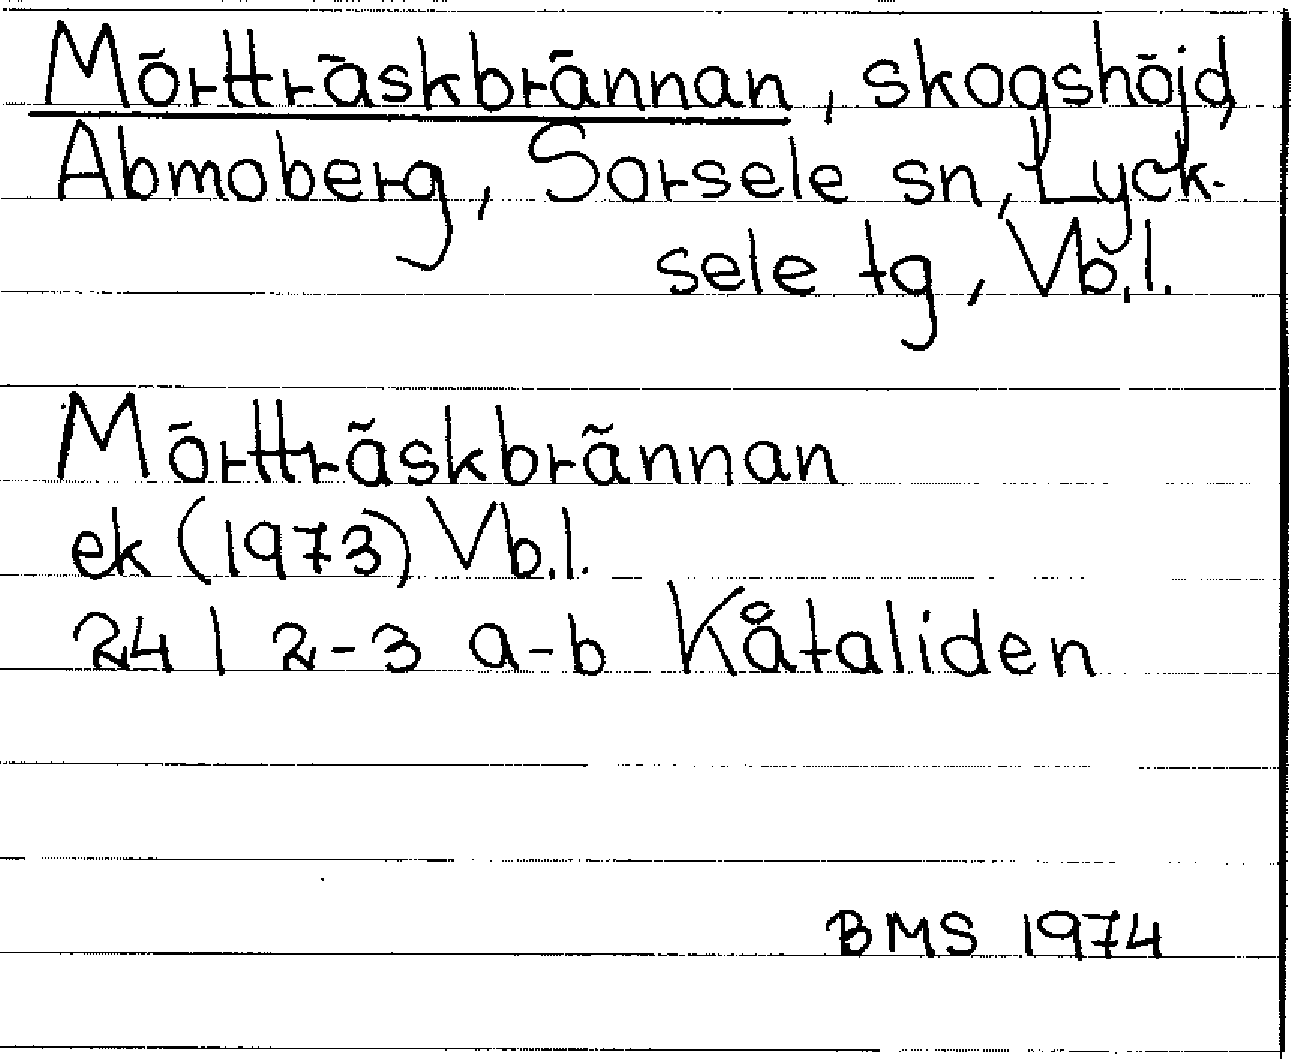 Mörtträskbrännan, skogshöjd,
Abmoberg, Sorsele sn, Lyck-
sele tg, Vb.l.
Mörtträskbrännan
ek (1973) Vb.l.
24 I 2-3 a-b Kåtaliden
BMS 1974